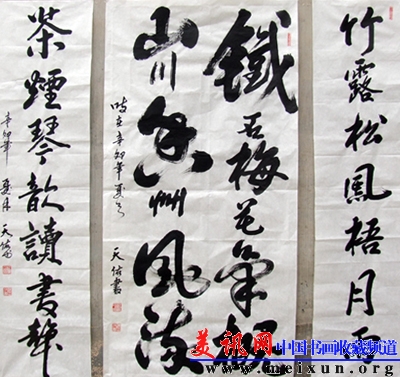 竹露松風梧月
鐵石梅花氣概
山川香草風流
時在辛卯年夏月
天佑書
茶煙琴韻讀書聲
辛卯年
夏月
天佑
美讯网 中国书画收藏频道
www.meixun.org